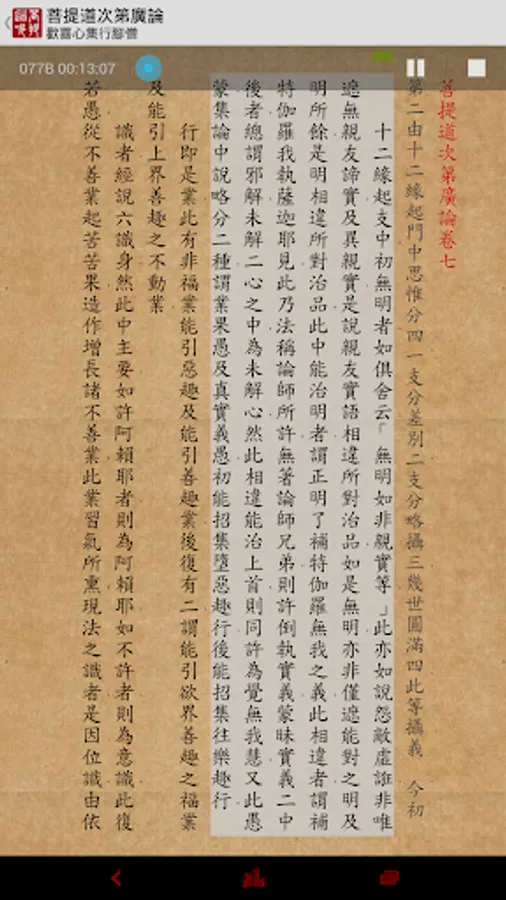 菩提道次第廣論
歡喜心集行腳僧
077B 00:13:07
菩提道次第廣論卷七
第二由十二緣起門中思惟分四一支分差別二支分略攝三幾世圓滿四此等攝義　今初
十二緣起支中初無明者如俱舍云「無明如非親實等」此亦如說怨敵虛誑非唯
遮無親友諦實及異親實是說親友實語相違所對治品如是無明亦非僅遮能對之明及
明所餘是明相違所對治品此中能治明者謂正明了補特伽羅無我之義此相違者謂補
特伽羅我執薩迦耶見此乃法稱論師所許無著論師兄弟則許倒執實義蒙昧實義二中
後者總謂邪解未解二心之中為未解心然此相違能治上首則同許為覺無我慧又此愚
蒙集論中說略分二種謂業果愚及真實義愚初能招集墮惡趣行後能招集往樂趣行
行即是業此有非福業能引惡趣及能引善趣業後復有二謂能引欲界善趣之福業
及能引上界善趣之不動業
識者經說六識身然此中主要如許阿賴耶者則為阿賴耶如不許者則為意識此復
若愚從不善業起苦苦果造作增長諸不善業此業習氣所熏現法之識者是因位識由依